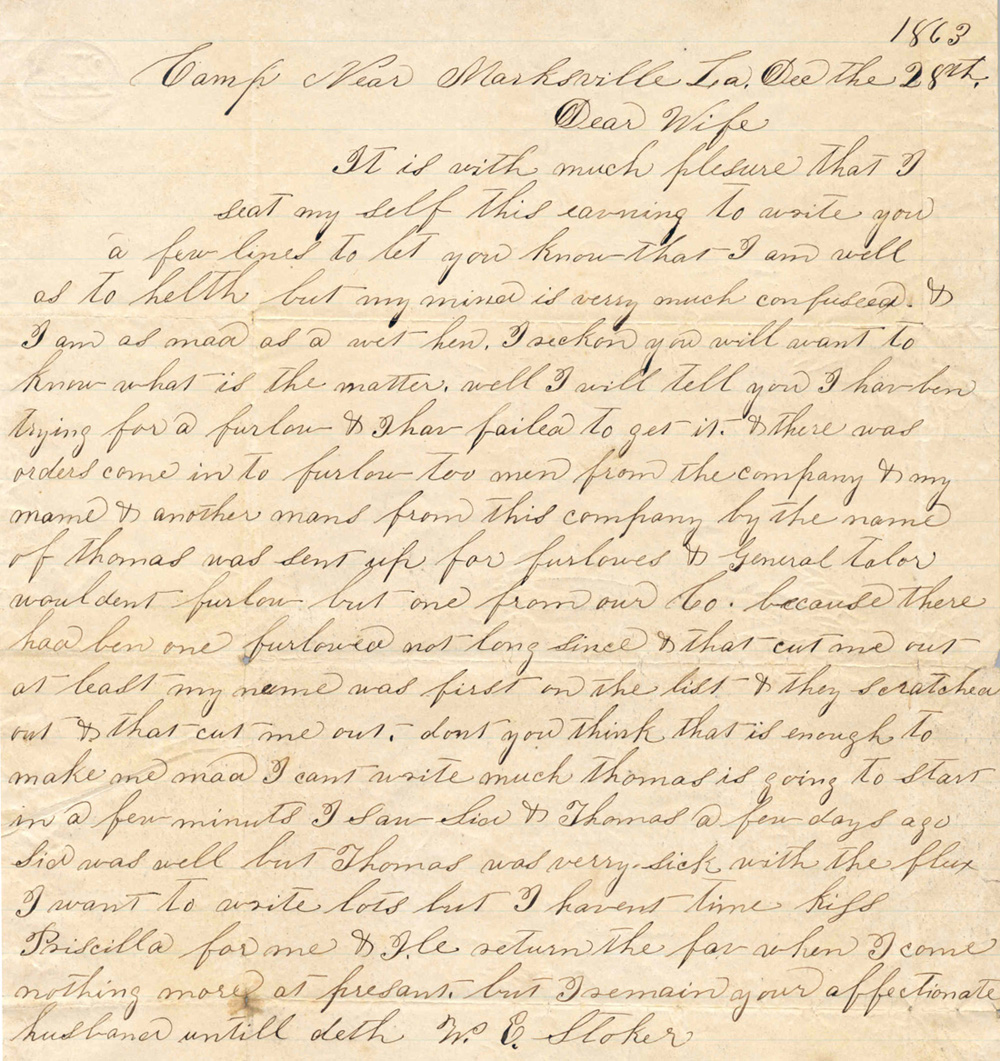 1863
Camp Near Marksville La. Dec the 28th.
Dear Wife
It is with much plesure that I
seat my self this eavning to write you
a few lines to let you know that I am well
as to helth but my mind is verry much confused. &
I am as mad as a wet hen. I reckon you will want to
know what is the matter. well I will tell you I hav ben
trying for a furlow & I hav failed to get it. & there was
orders come in to furlow too men from the company & my
mame & another mans from this company by the name
of thomas was sent up for furlowes & General talor
wouldent furlow but one from our Co. because there
had ben one furlowed not long since & that cut me out
at least my name was first on the list & they scratched
out & that cut me out. dont you think that is enough to
make me mad I cant write much thomas is going to start
in a few minuts I saw Sid & Thomas a few days ago
Sid was well but Thomas was verry sick with the flux
I want to write lots but I havent time kiss
Priscilla for me & I.le return the fav when I come
nothing more at presant. but I remain your affectionate
husband untill deth W. E. Stoker